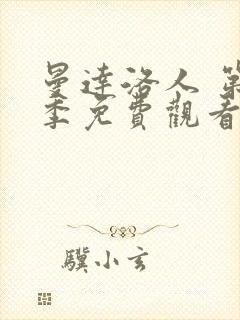 曼達洛人 第
季免費觀看
驥小玄